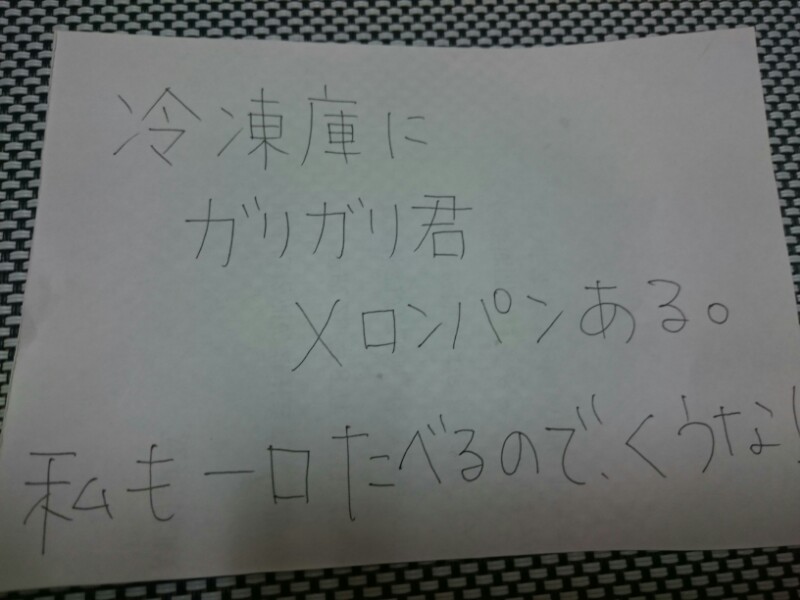 冷凍庫に
ガリガリ君
メロンパンある。
私も一口たべるので、くうな!